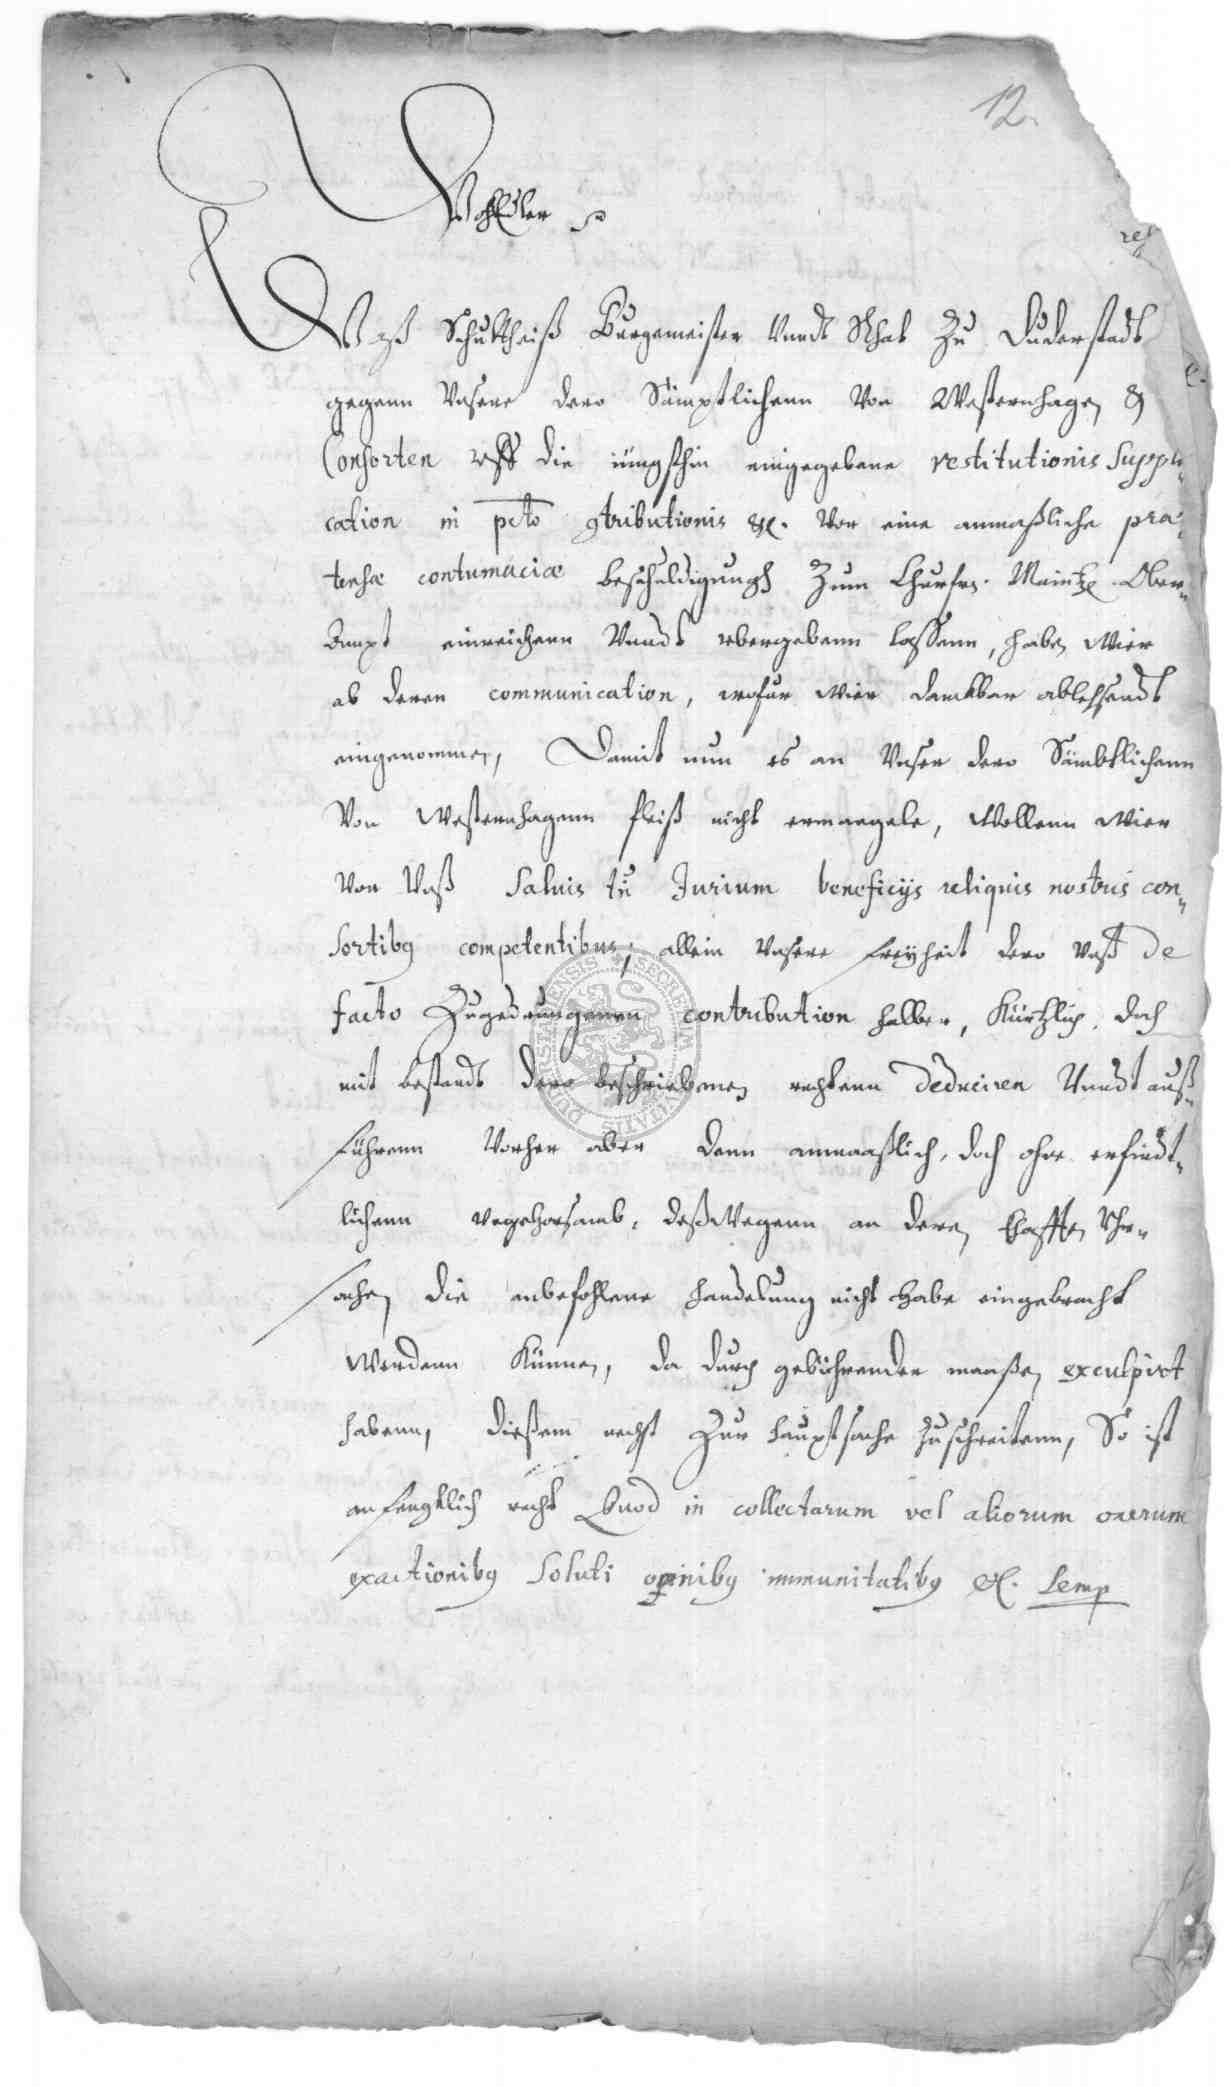 12.
WohlEdler p
Waß Schultheiß Burgemeister Vnndt Rhat Zu Duderstadt
gegenn Vnsere dero Sämptlichenn Von Westernhagen &
Consorten vff die jüngsthin eingegebene restitutionis Suppli-
cation in pcto gtributionis &c. Vor eine anmaßliche præ-
tensæ contumaciæ beschuldigungh Zum Churfrs. Maintz. Ober-
Ampt einreichenn Vnndt vbergebenn lassenn, haben Wier
ab deren communication, wofür Wier danckbar ableßendt
eingenommen, Damit nun es an Vnser dero Sämbtlichenn
Von Westernhagenn fleiß nicht ermangele, Wollenn Wier
Von Vnß Saluis tn Jurium beneficijs reliquis nostris con-
sortibq competentibus, allein Vnsere Freyheit dero Vnß de
facto Zugedrungenen contribution halber, Kürtzlich, doch
mit bestandt dero beschriebenen rechtenn deduciren Vnndt auß-
führenn Vorher aber denn anmaaßlich, doch ohne erfindt-
lichenn vngehorsamb, deßWegenn an deren Ehafften Vhr-
sachen die anbefohlene handelung nicht habe eingebracht
Werdenn Künnen, da durch gebührender maaßen exculpirt
habenn, dießem nechst Zur hauptsache zuschreitenn, So ist
anfengklich recht Quod in collectarum vel aliorum onerum
exactionibq Soluti opinibq immunitatibq &c. Semp
DUDERSTADIENSIS SECRETUM CIVITATIS